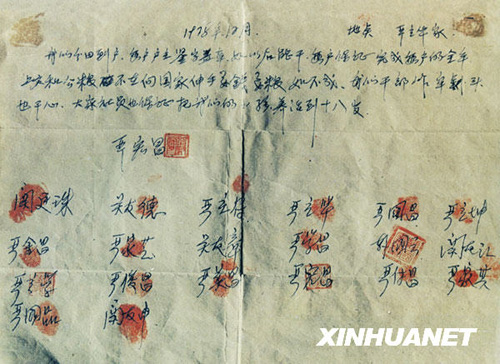 1978年12月 地点 严立华家
我们分田到户，每户户主签字盖章，如以后能干，每户保证完成每户的全年
上交和公粮，不在向国家伸手要钱要粮，如不成，我们干部作牢刹头
也干心，大家社员也保证把我们的小孩养活到十八岁。
严宏昌
关廷珠 关友德 严立符 严立华 严国昌 严立坤
严金昌 严家芝 关友章 严学昌 韩国云 关友江
严立学 严俊昌 严美昌 严宏昌 严付昌 严家其
严国品 关友申
XINHUANET